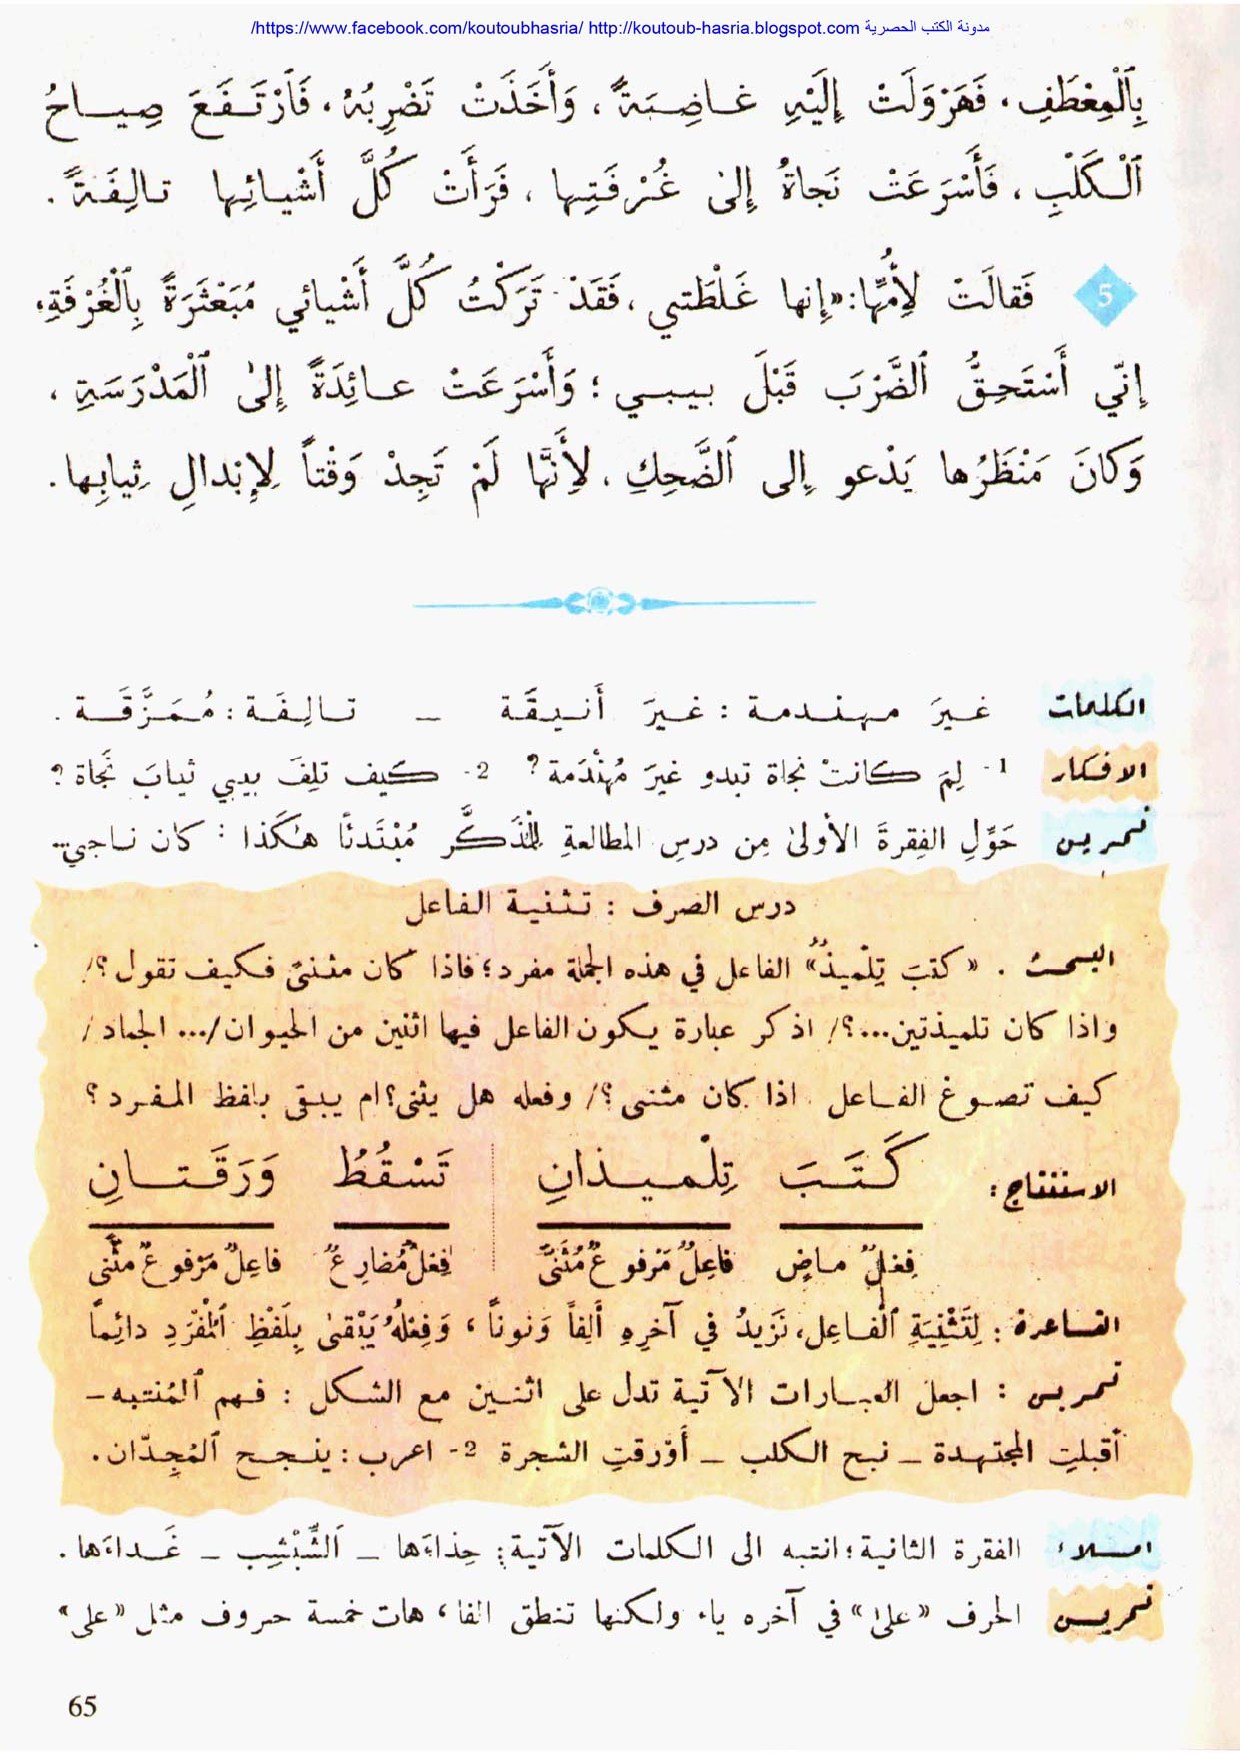 https://www.facebook.com/koutoubhasria/ http://koutoub-hasria.blogspot.com مدونة الكتب الحصرية/
بِٱلْمِعْطَفِ، فَهَرْوَلَتْ إِلَيْهِ غـاضِبَةً، وَأَخَذَتْ تَضْرِبُهُ، فَٱرْتَفَعَ صِياحُ
ٱلْكَلْبِ، فَأَسْرَعَتْ نَجاةُ إِلىٰ غُرْفَتِها، فَرَأَتْ كُلَّ أَشْيائِها تالِفَةً.
5 فَقالَتْ لِأُمِّها: «إِنها غَلْطَتي، فَقَدْ تَرَكْتُ كُلَّ أَشْيائي مُبَعْثَرَةً بِٱلْغُرْفَةِ،
إِنّي أَسْتَحِقُّ ٱلضَّرْبَ قَبْلَ بيبي؛ وَأَسْرَعَتْ عائِدَةً إِلىٰ ٱلْمَدْرَسَةِ،
وَكانَ مَنْظَرُها يَدْعو إِلى ٱلضَّحِكِ، لِأَنَّها لَمْ تَجِدْ وَقْتاً لِإِبْدالِ ثِيابِها.
الكلمات غيرَ مهندمة: غيرَ أَنيقَة – تالِفَة: مُمَزَّقَة.
الافكار 1- لِمَ كانتْ نجاة تبدو غيرَ مُهنْدَمة؟ 2- كَيف تلِفَ بيبي ثيابَ نَجاة؟
تمرين حَوِّلِ الفِقرةَ الأولىٰ مِن درسِ المطالعةِ لِلْمُذَكَّر مُبْتَدئًا هٰكَذا: كان ناجي..
درس الصرف : تثنية الفاعل
البحث . «كتبَ تِلْميذٌ» الفاعل في هذه الجملة مفرد؛ فاذا كان مثنىً فكيف تقول؟/
واذا كان تلميذتين...؟/ اذكر عبارة يكون الفاعل فيها اثنين من الحيوان/... الجماد/
كيف تصوغ الفاعل اذا كان مثنى؟/ وفعله هل يثنى؟ ام يبقى بلفظ المفرد؟
الاستنتاج: كَتَبَ تِلْميذانِ تَسْقُطُ وَرَقَتانِ
فِعْلٌ ماضٍ فاعِلٌ مَرْفوعٌ مُثَنًّى فِعْلٌ مُضارِعٌ فاعِلٌ مَرْفوعٌ مثنًّى
القاعدة: لِتَثْنِيَةِ ٱلْفاعِل، نَزيدُ في آخرِهِ أَلِفاً وَنوناً، وَفِعْلُهُ يَبْقىٰ بِلَفْظِ ٱلْمُفْرَدِ دائِماً
تمرين : اجعل العبارات الآتية تدل على اثنين مع الشكل : فهم ٱلمُنتبه –
أقبلتِ المجتهدة – نبح الكلب – أوْرقتِ الشجرة 2- اعرب : ينجح ٱلمُجِدّان.
املاء الفقرة الثانية؛ انتبه الى الكلمات الآتية: حِذاءَها – ٱلشِّبْشِب – غَداءَها.
تمرين الحرف «علىٰ» في آخره ياء ولكنها تنطق الفا، هات خمسة حروف مثل «على»
65